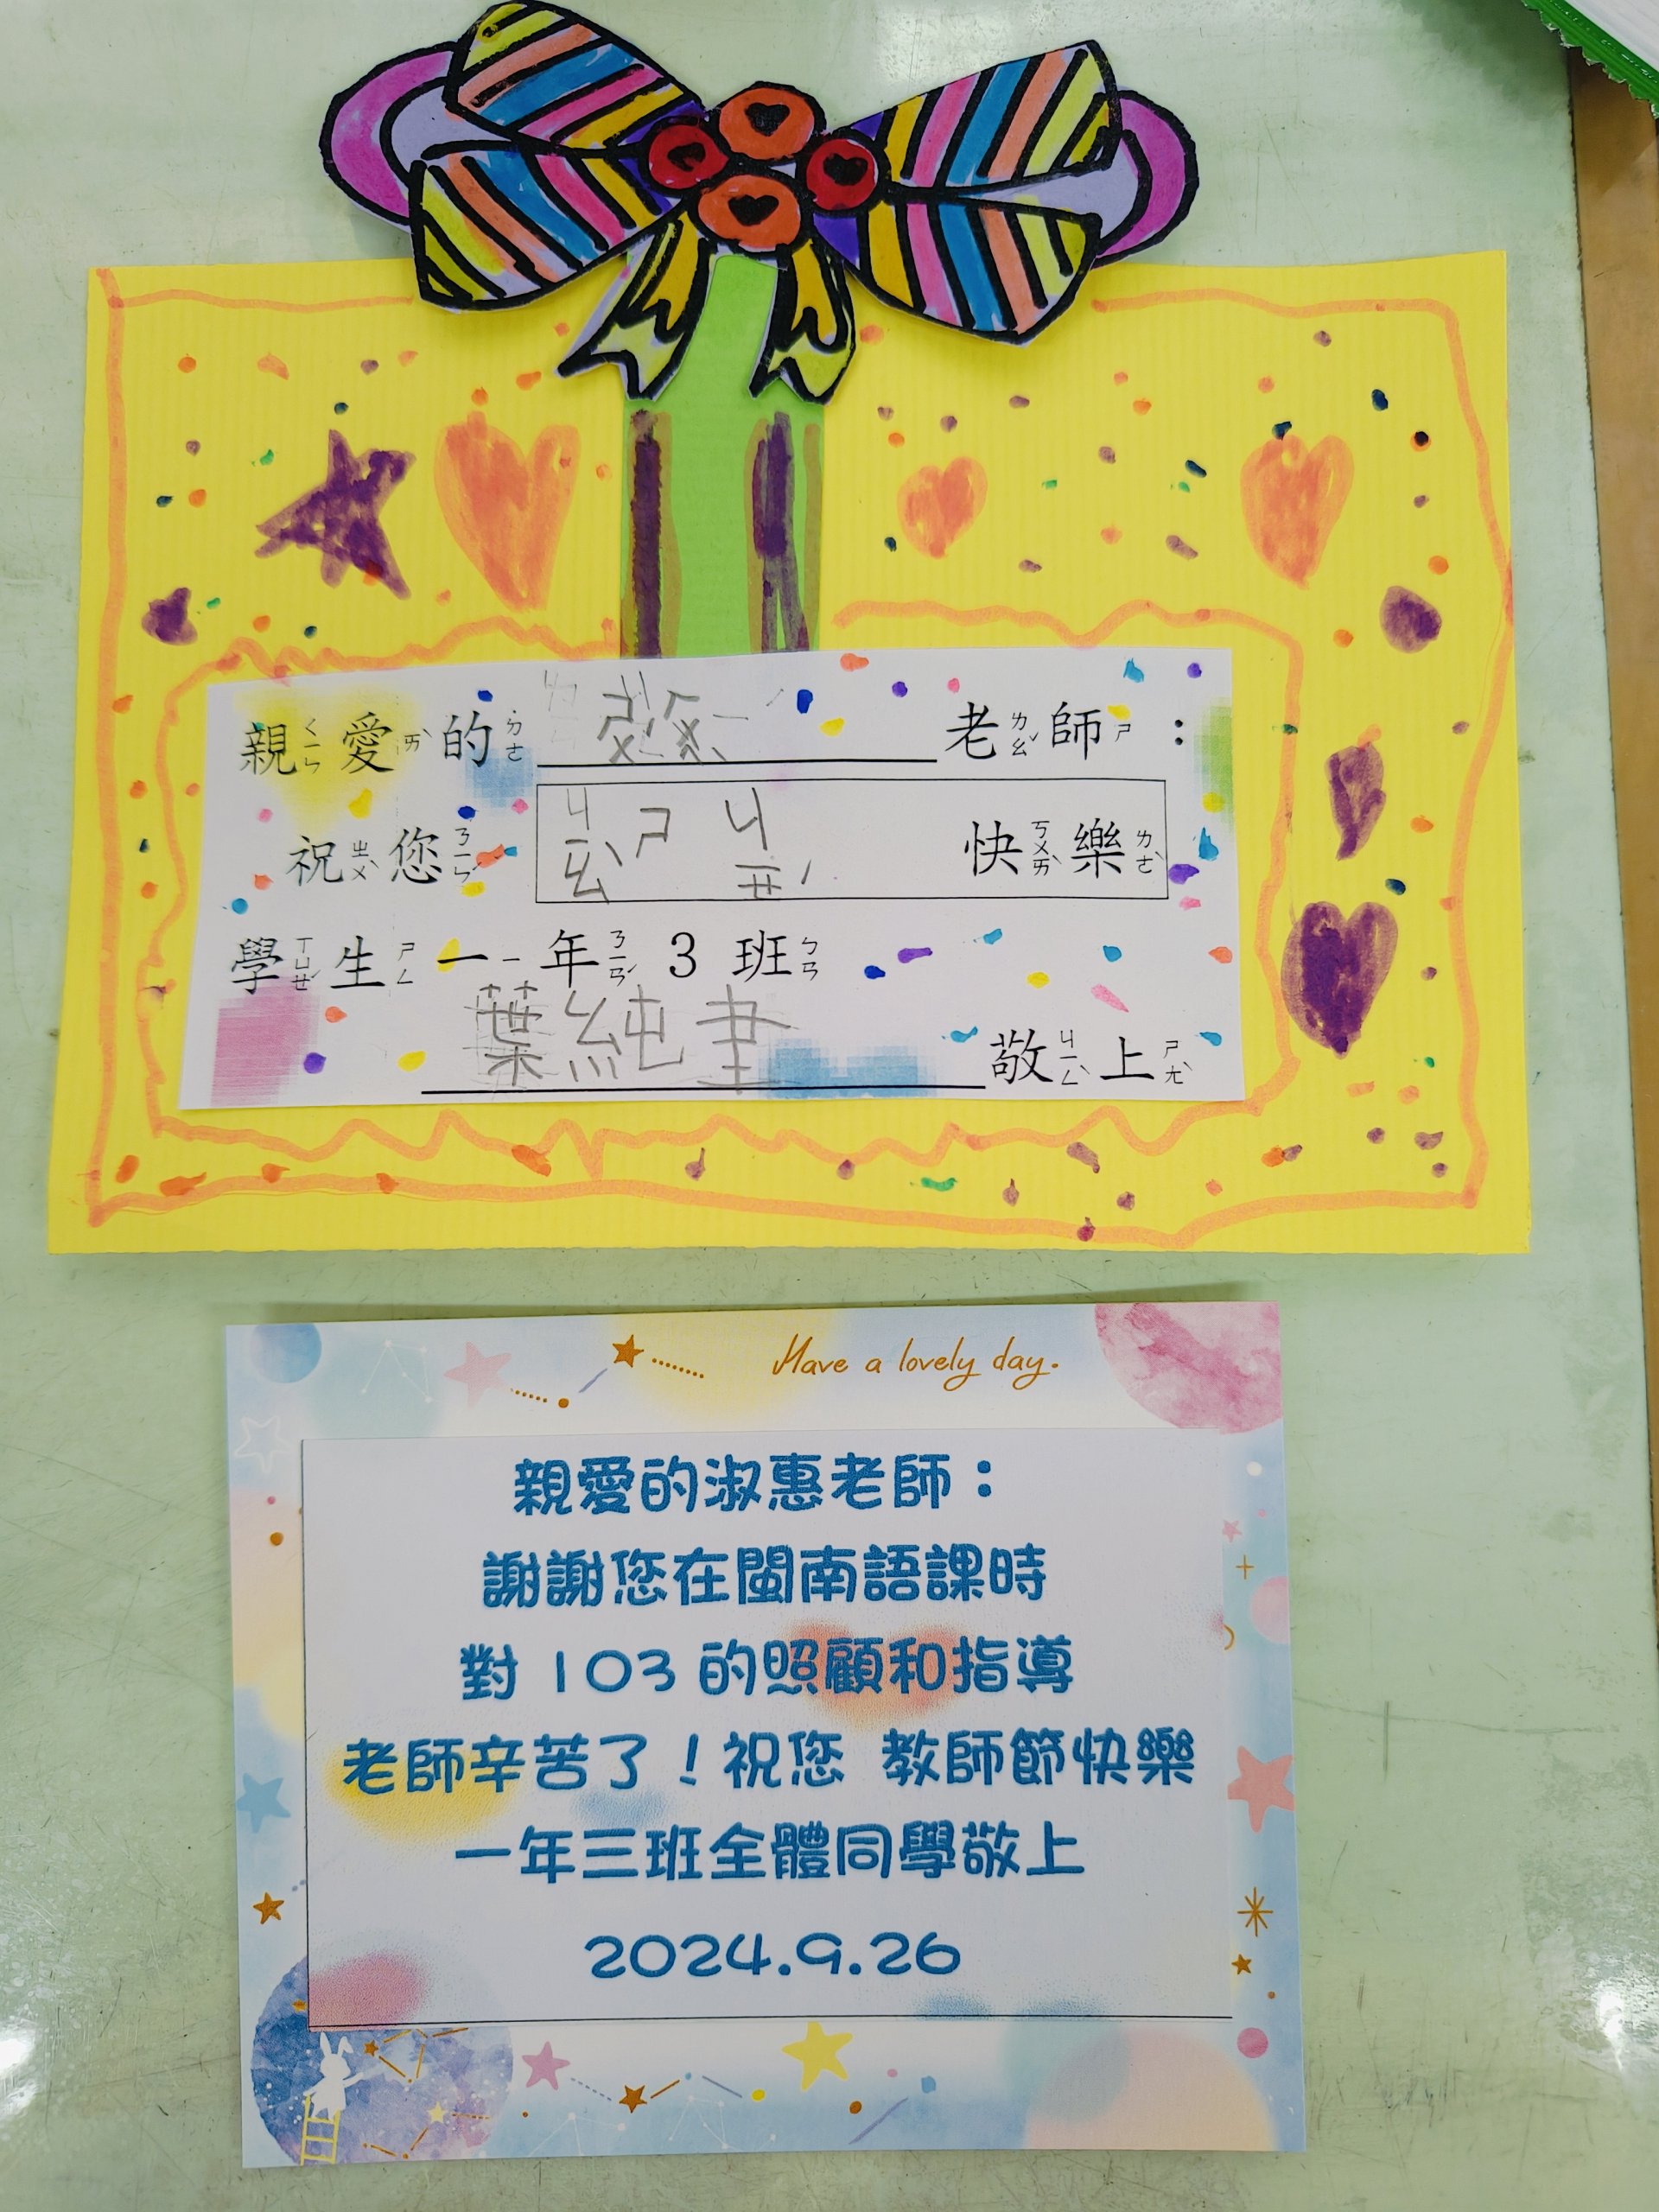 親ㄑㄧㄣ愛ㄞˋ的˙ㄉㄜ 老ㄌㄠˇ師ㄕ：
祝ㄓㄨˋ您ㄋㄧㄣˊ ㄐㄧㄠˋㄕㄐㄧㄝˊ 快ㄎㄨㄞˋ樂ㄌㄜˋ
學ㄒㄩㄝˊ生ㄕㄥ 一ㄧ 年ㄋㄧㄢˊ 3 班ㄅㄢ
葉純聿 敬ㄐㄧㄥˋ上ㄕㄤˋ
Have a lovely day.
親愛的淑惠老師：
謝謝您在閩南語課時
對 103 的照顧和指導
老師辛苦了！祝您 教師節快樂
一年三班全體同學敬上
2024.9.26